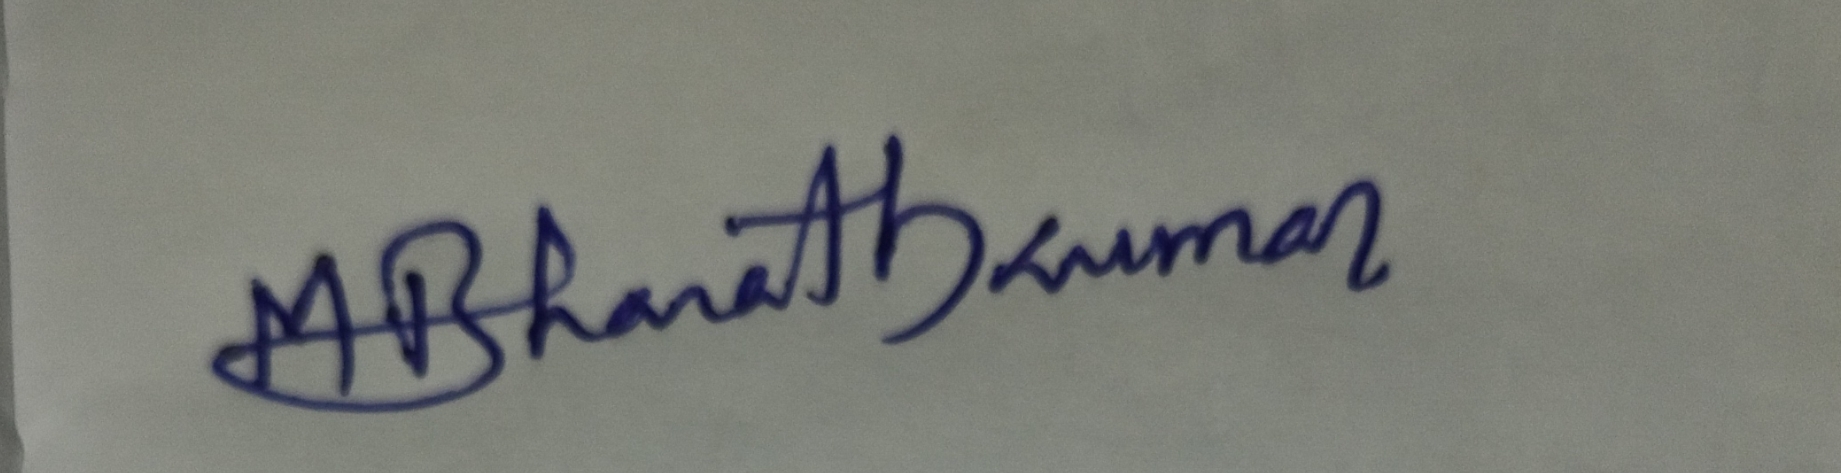 M Bharathkumar